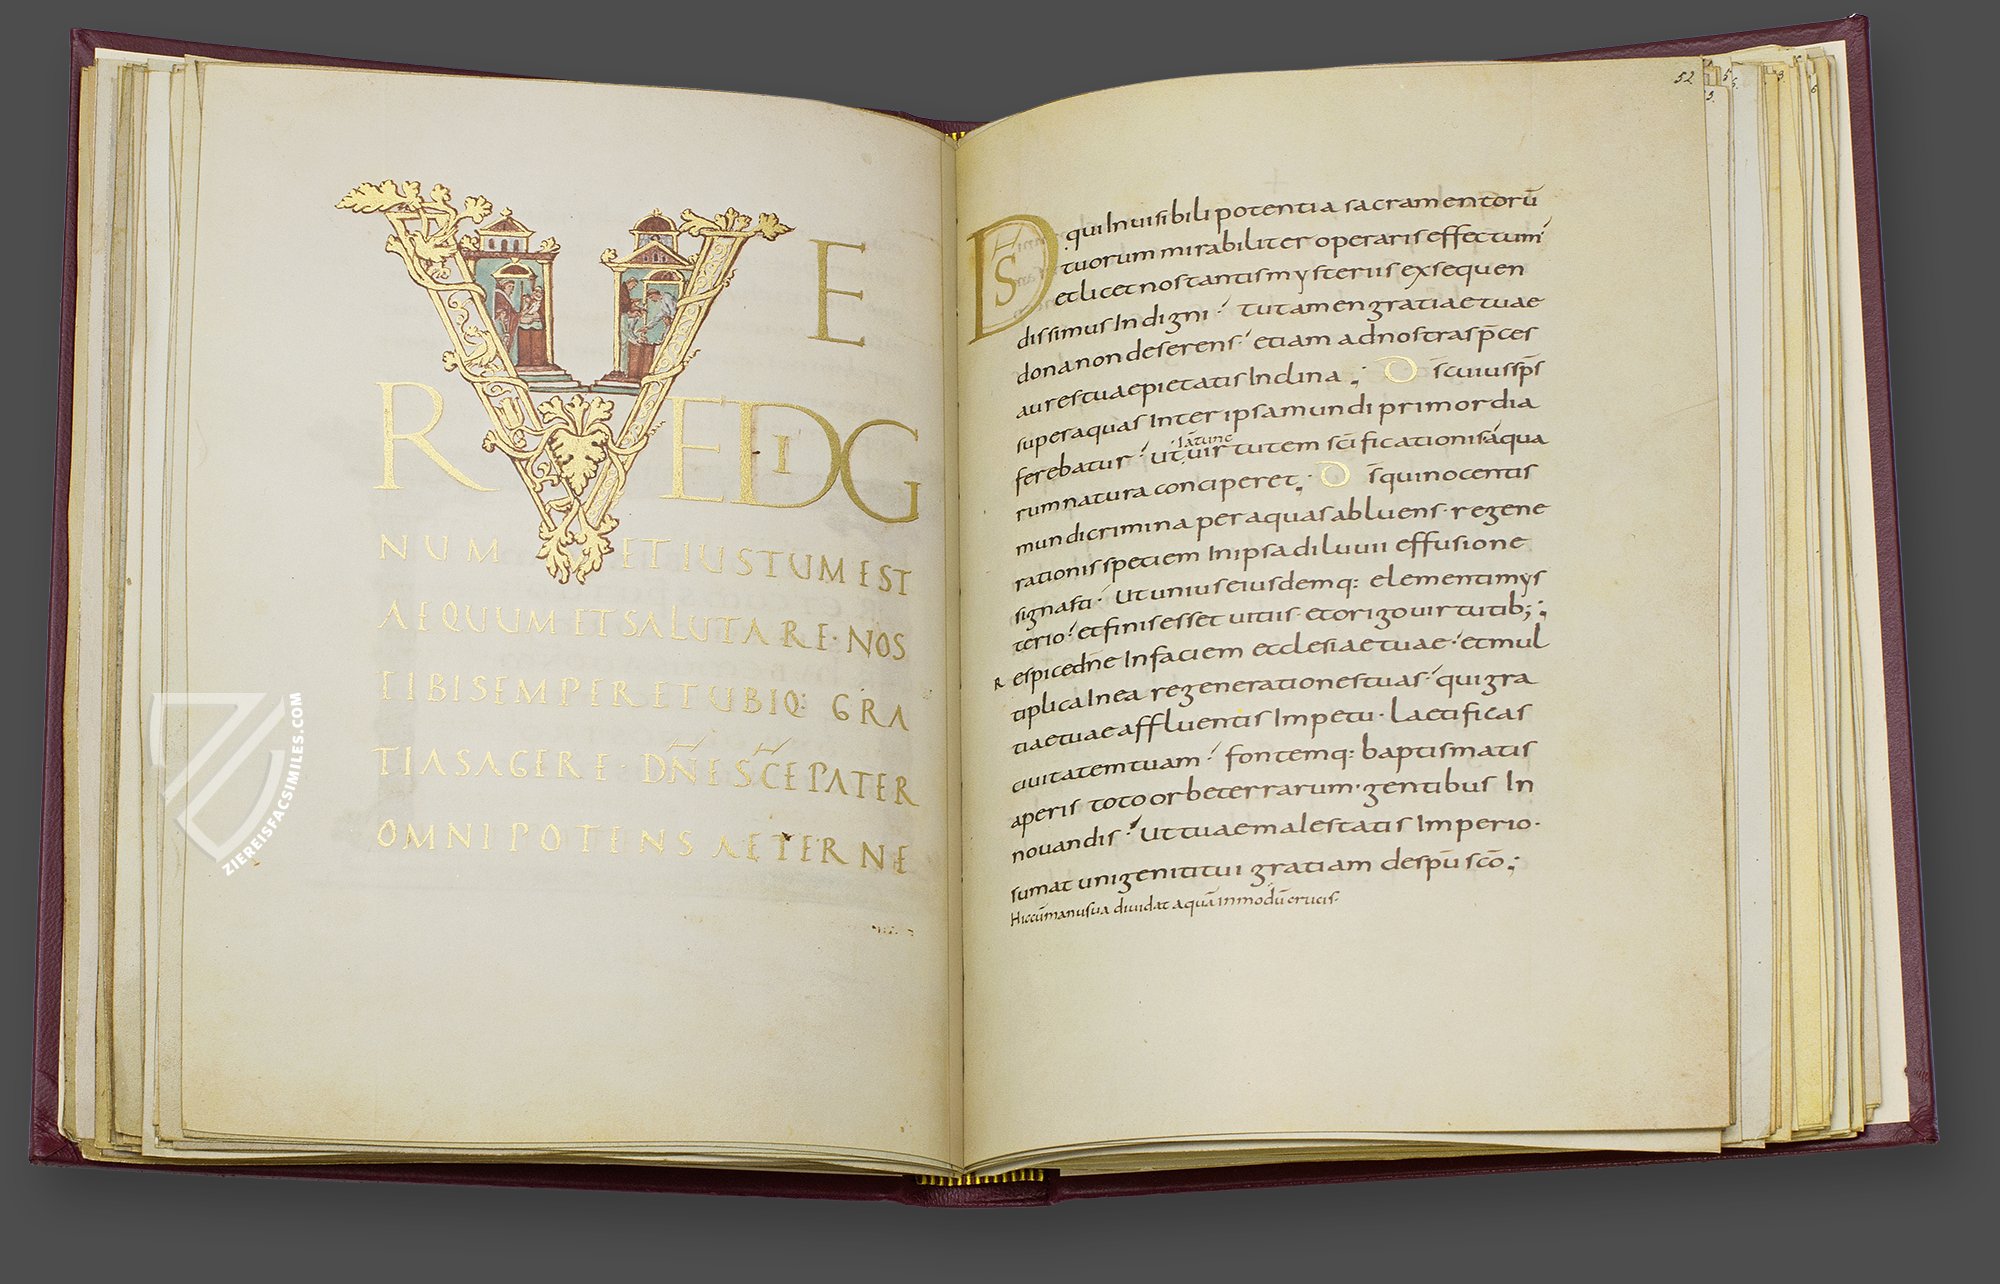 VE
RE EDIG
NUM ET IUSTUM EST
AEQUUM ET SALUTARE· NOS
TIBI SEMPER ET UBIQ: GRA
TIAS AGERE· DN̄E SC̄E PATER
OMNIPOTENS AETERNE
ZIEREISFACSIMILES.COM
52
DS qui Inuisibili potentia sacramentorū
tuorum mirabiliter operaris effectum·
et licet nos tantis mysteriis exsequen
dissimus Indigni· tu tamen gratiae tuae
dona non deserens· etiam ad nostras p̄ces
aures tuae pietatis Inclina; Ds̄ cuius sp̄s
super aquas Inter ipsa mundi primordia
iā tunc
ferebatur· Ut uirtutem sc̄ificationis aqua
rum natura conciperet; Ds̄ qui nocentis
mundi crimina per aquas abluens· regene
rationis speciem In ipsa diluuii effusione
signasti· Ut unius eiusdemq: elementi mys
terio· et finis esset uitiis· et origo uirtutib;;
R espice dn̄e In faciem ecclesiae tuae· et mul
tiplica In ea regenerationes tuas· qui gra
tiae tuae affluentis Impetu· laetificas
ciuitatem tuam· fontemq: baptismatis
aperis toto orbe terrarum· gentibus In
nouandis· Ut tuae maiestatis Imperio·
sumat unigeniti tui gratiam de sp̄u sc̄o;
Hic cū manu sua diuidat aquā In modū crucis·